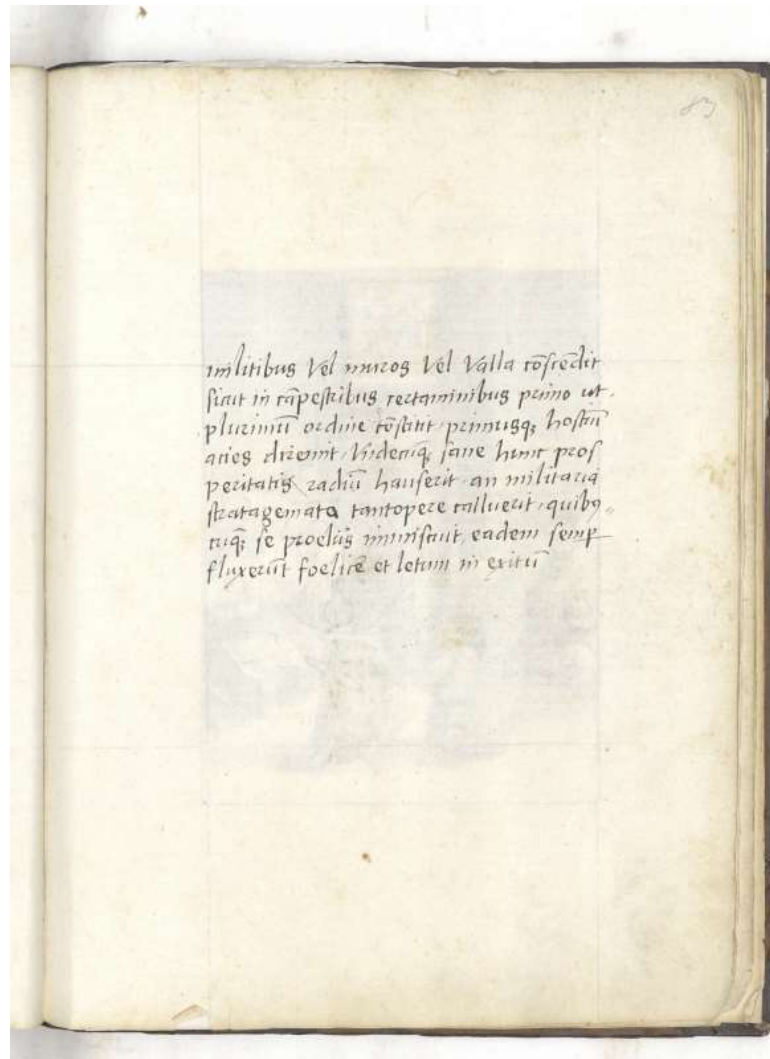 militibus Vel muros Vel Valla cōscēdit
sicut in cāpestribus certaminibus primo ut
plurimū ordine cōstitit primusq; hostiū
acies diremit. Vndecūq; sane hunc pros
peritatis radiū hauserit an militaria
stratagemata tantopere calluerit, quibꝰ
cūq; se proeliis immiscuit, eadem semp
fluxerūt foelicē et letum in exitū